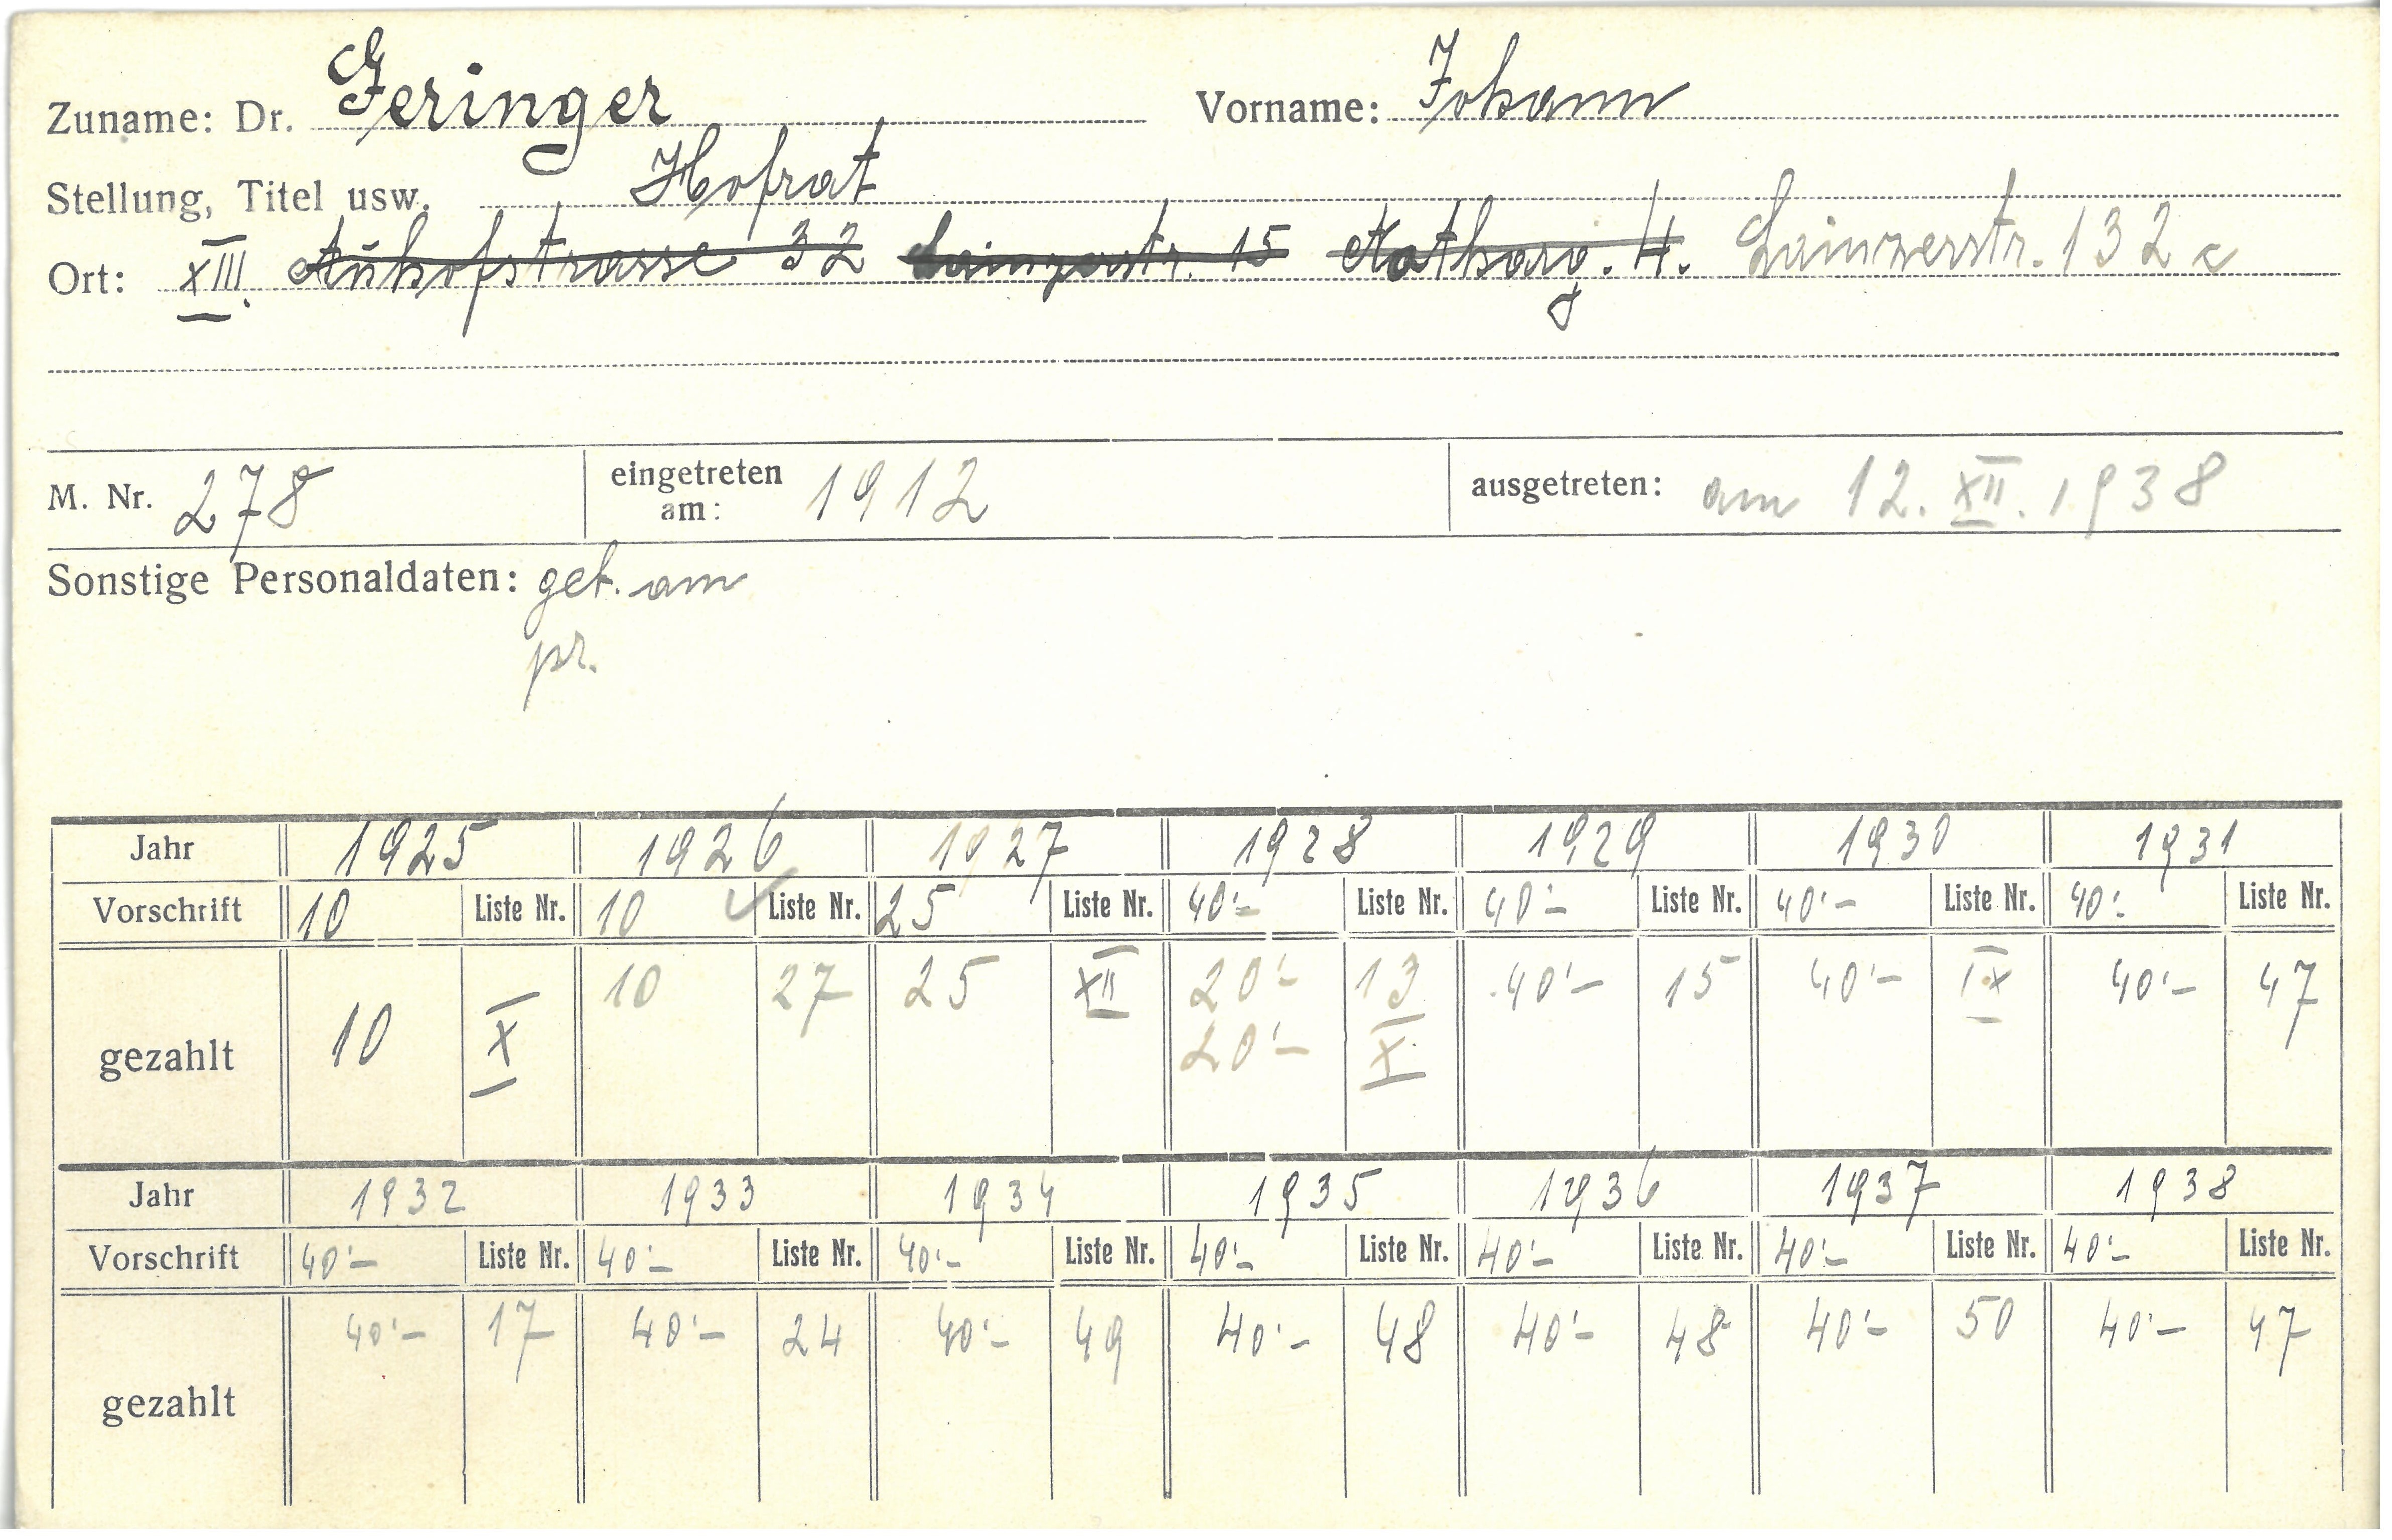 Zuname: Dr. Geringer Vorname: Johann
Stellung, Titel usw. Hofrat
Ort: XIII. Auhofstrasse 32 Lainzerstr. 15 Lainzerstr. 132 c
M. Nr. 278 eingetreten am: 1912 ausgetreten: am 12. XII. 1938
Sonstige Personaldaten: get. am
pr.
Jahr 1925 1926 1927 1928 1929 1930 1931
Vorschrift 10 Liste Nr. 10 ✓ Liste Nr. 25 Liste Nr. 40'- Liste Nr. 40'- Liste Nr. 40'- Liste Nr. 40'- Liste Nr.
gezahlt 10 X 10 27 25 XII 20'- 13 40'- 15 40'- IX 40'- 47
20'- X
Jahr 1932 1933 1934 1935 1936 1937 1938
Vorschrift 40'- Liste Nr. 40'- Liste Nr. 40'- Liste Nr. 40'- Liste Nr. 40'- Liste Nr. 40'- Liste Nr. 40'- Liste Nr.
gezahlt 40'- 17 40'- 24 40'- 49 40'- 48 40'- 48 40'- 50 40'- 47